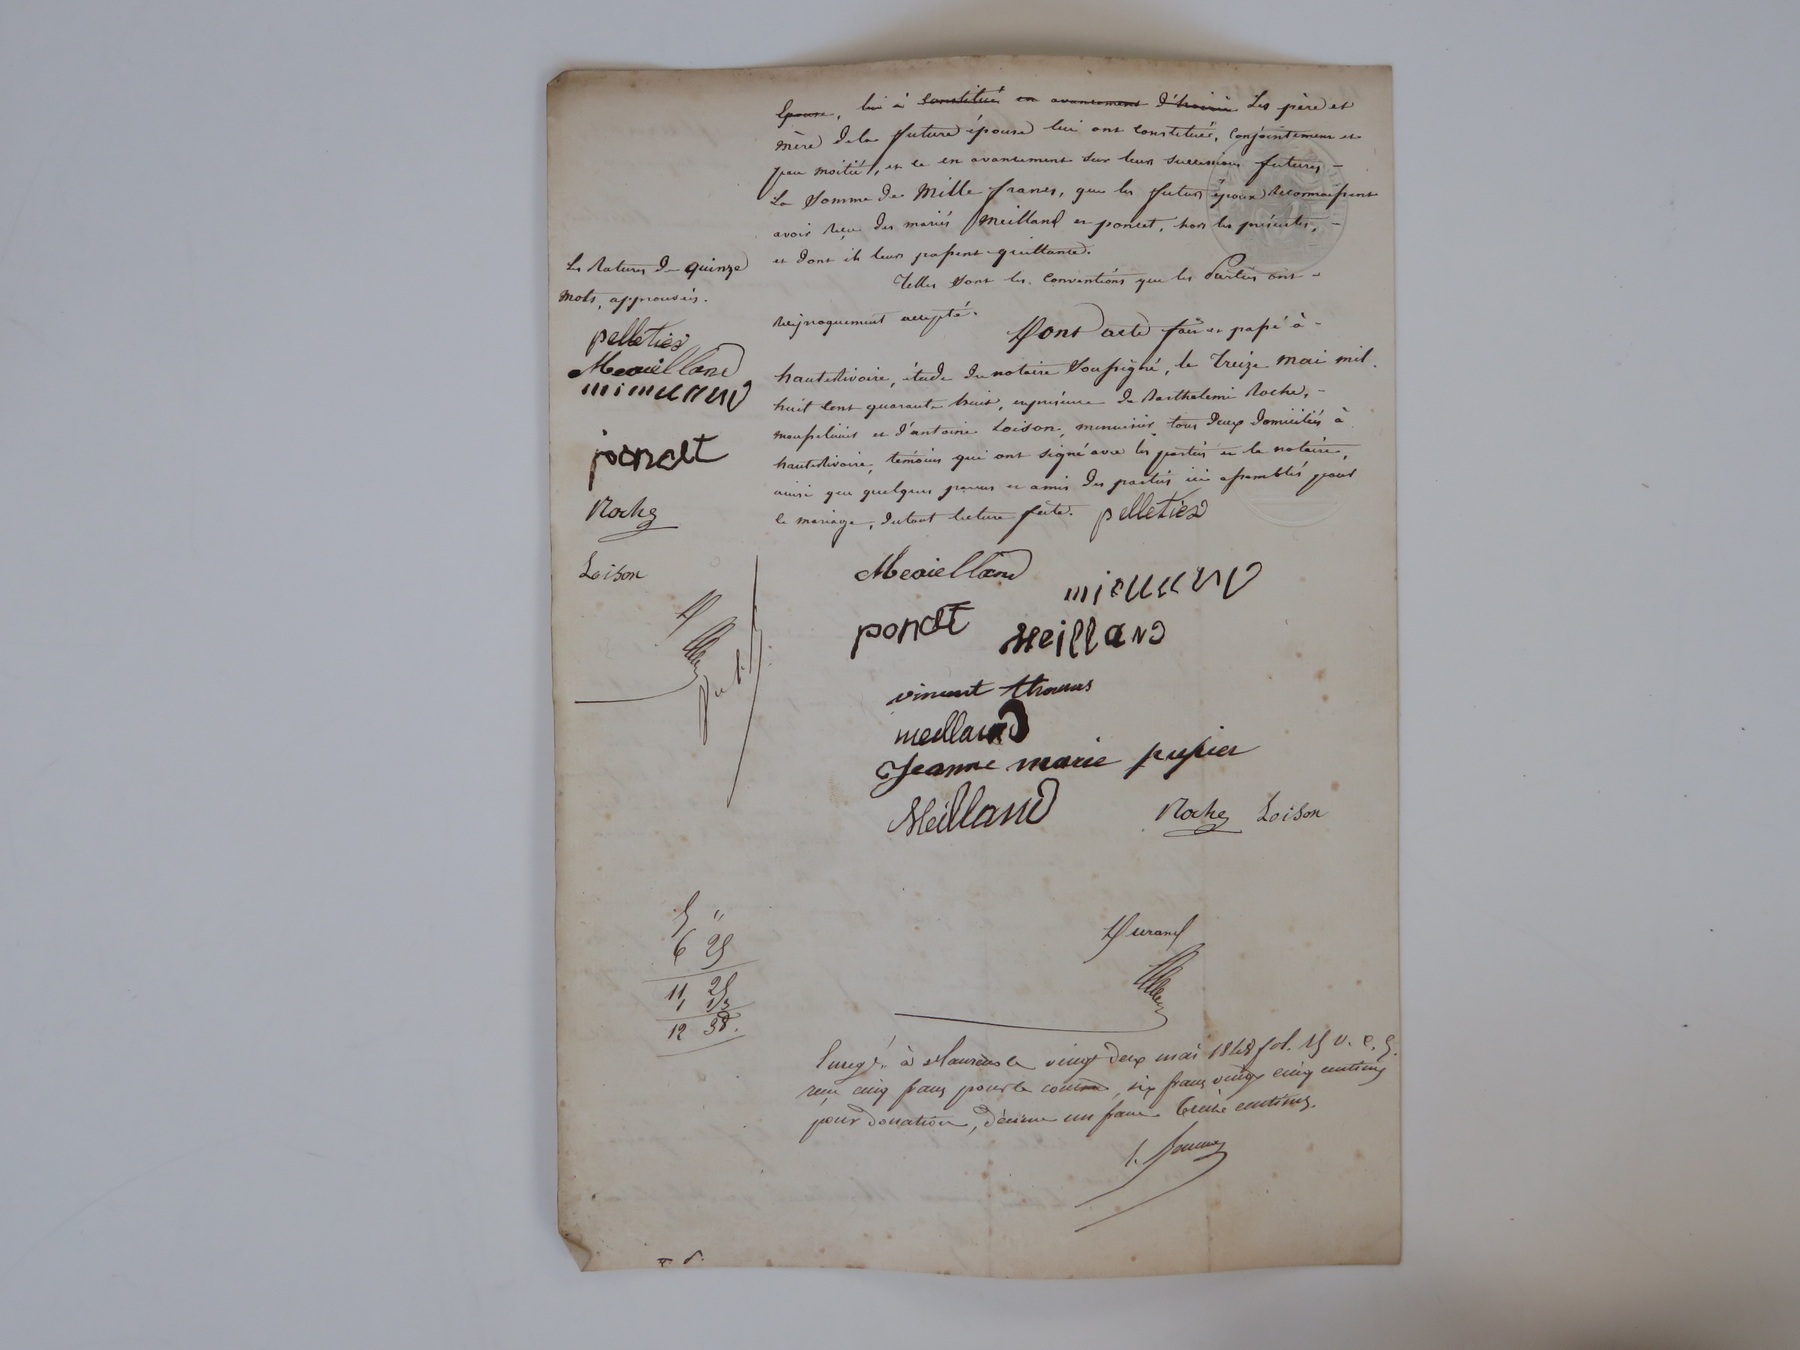 Epouse, lui a constitué en avancement d'hoirie Les père et
mère de la future épouse lui ont constitué, conjointement et
par moitié, et ce en avancement sur leurs successions futures,
La Somme de Mille francs, que les futurs époux reconnaissent
avoir reçue des mariés Meilland et poncet, hors les présentes,
et dont ils leur passent quittance.
Telles sont les conventions que les Parties ont
réciproquement accepté.
Dont acte fait et passé à
hauterivoire, étude du notaire Soussigné, le treize mai mil
huit cent quarante huit, en présence de Barthelemi Roche,
et d'antoine Loison, menuisier, tous deux domiciliés à
hauterivoire, témoins qui ont signé avec les parties et le notaire,
ainsi que quelques parens et amis des parties ici assemblés pour
le mariage, du tout lecture faite. pelletier
La Rature de quinze
mots, approuvés.
pelletier
Meailland
poncet
Roche
Loison
Meailland
poncet
Meilland
vincent thomas
meilland
Jeanne marie pupier
Meilland
Roche Loison
Durand
5 "
6 25
11, 25
1, 13
12 38.
Enregé. à st Laurent le vingt deux mai 1848 fol. 15 v. c. 5.
reçu cinq francs pour le contrat, six francs vingt cinq centimes
pour donation, décime un franc treize centimes.